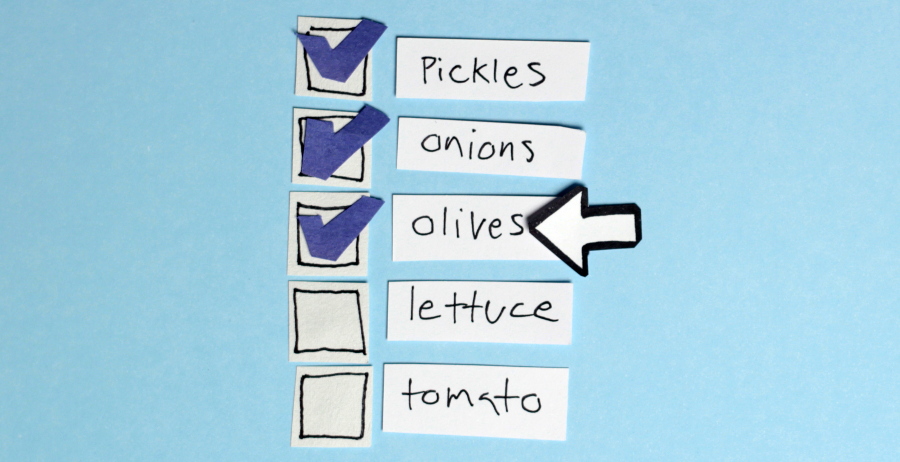 Pickles
onions
olives
lettuce
tomato